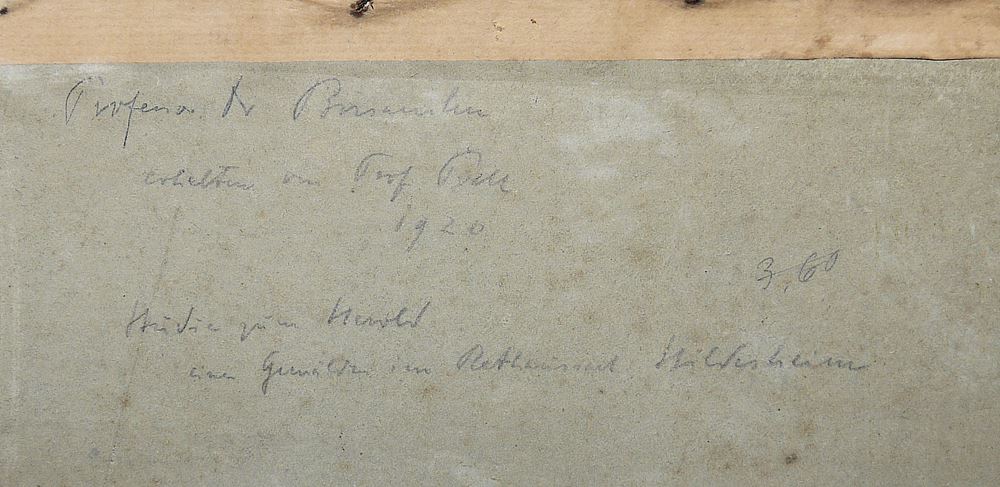 Professor Dr
erhalten von Prof Prell
1920
3,60
Studie zum Herold
eines Gemäldes im Rathaussaal Hildesheim